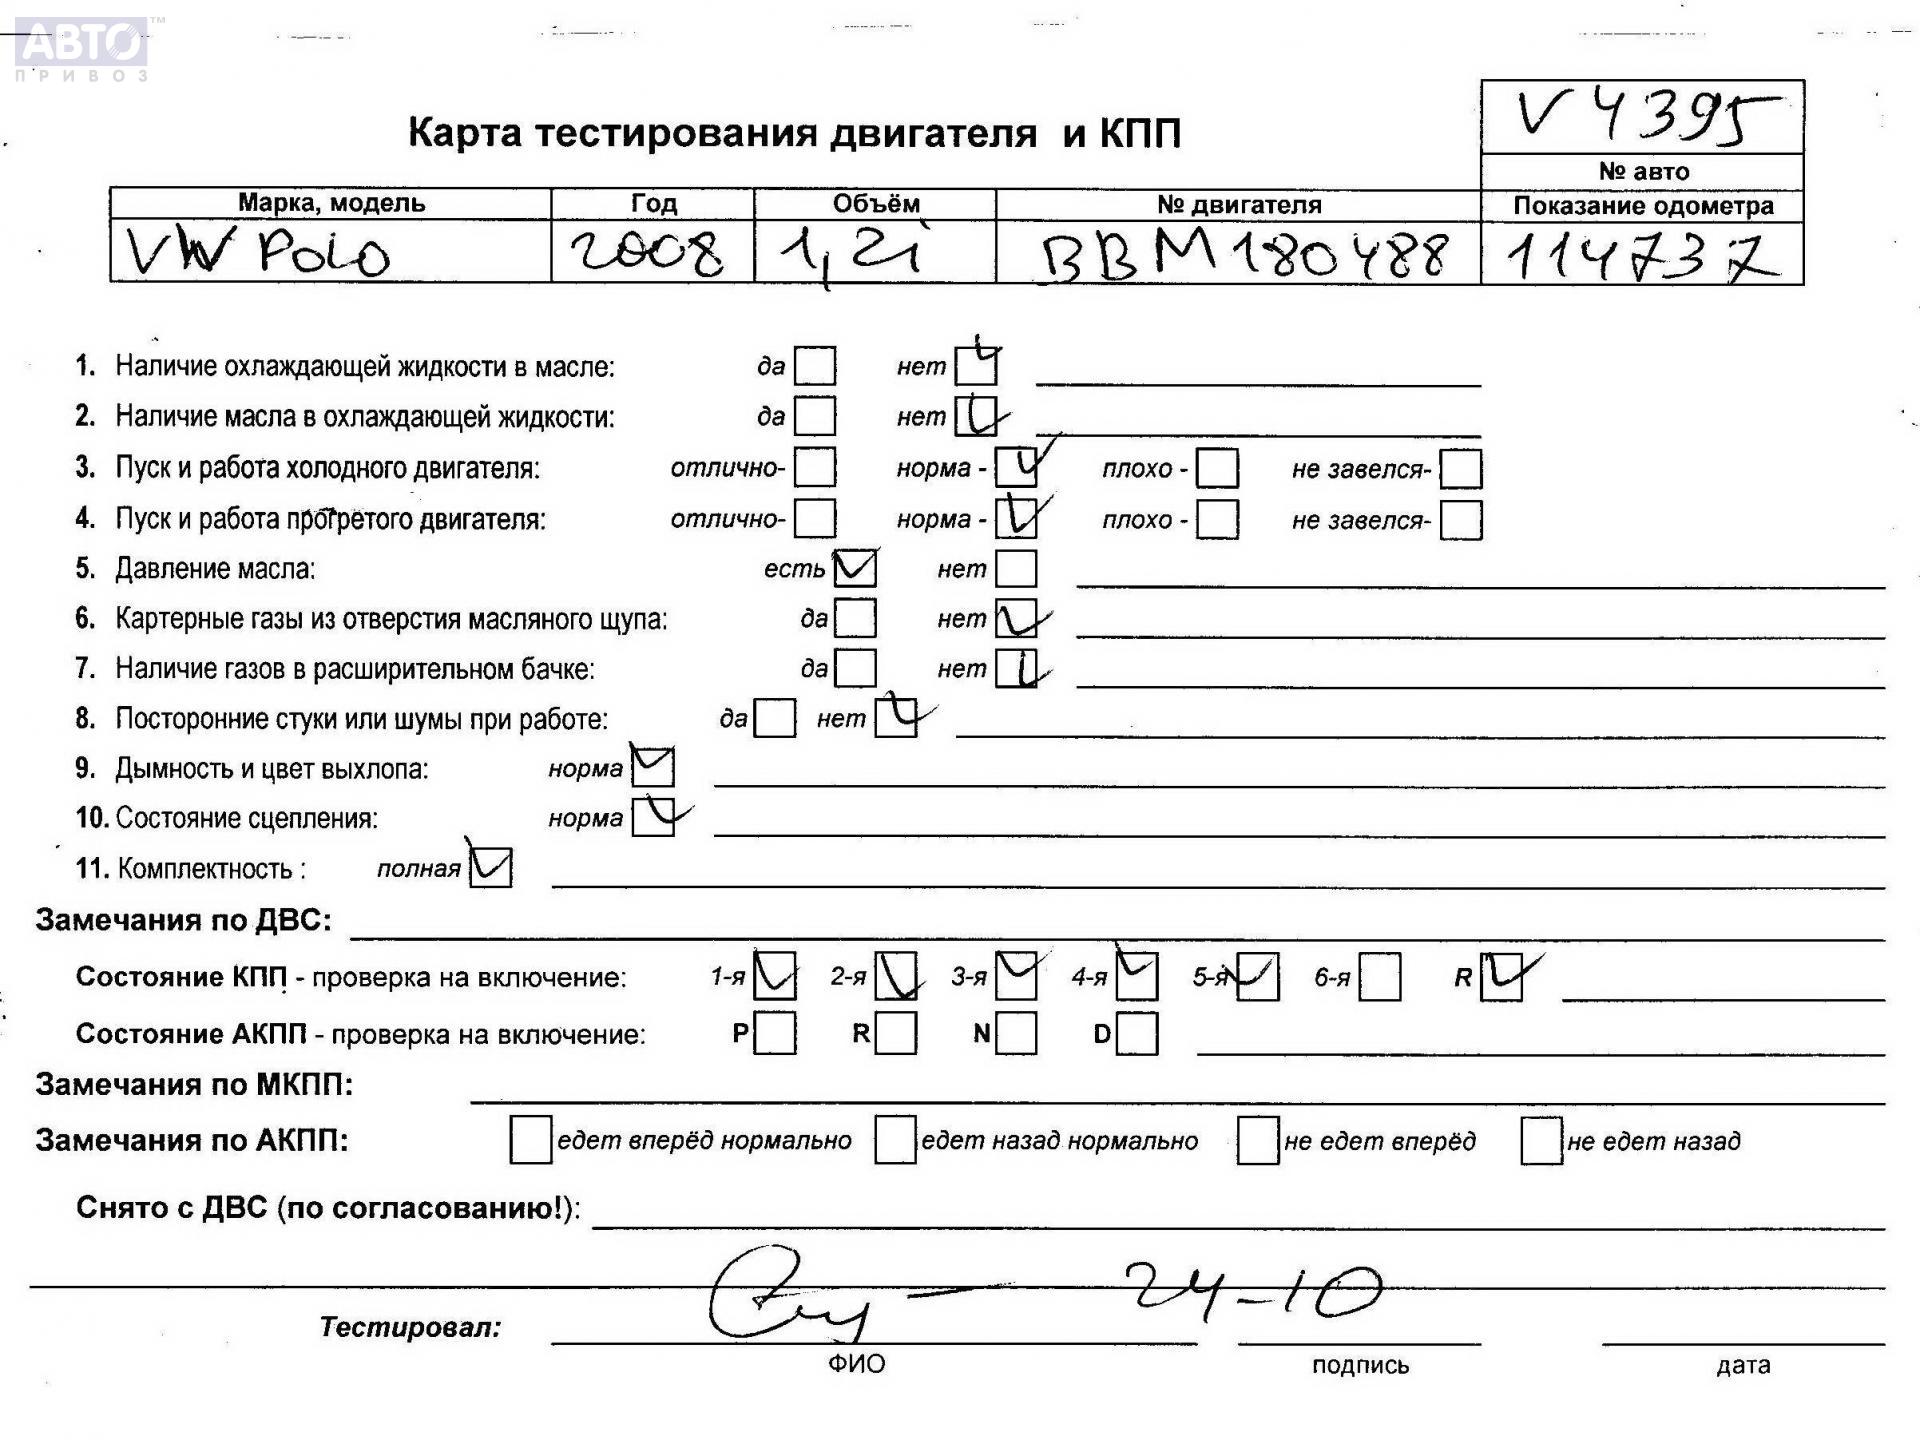 АВТО™
ПРИВОЗ
V4395
Карта тестирования двигателя и КПП
№ авто
Марка, модель Год Объём № двигателя Показание одометра
VW Polo 2008 1,2i BBM180488 114737
1. Наличие охлаждающей жидкости в масле: да нет
2. Наличие масла в охлаждающей жидкости: да нет
3. Пуск и работа холодного двигателя: отлично- норма - плохо - не завелся-
4. Пуск и работа прогретого двигателя: отлично- норма - плохо - не завелся-
5. Давление масла: есть нет
6. Картерные газы из отверстия масляного щупа: да нет
7. Наличие газов в расширительном бачке: да нет
8. Посторонние стуки или шумы при работе: да нет
9. Дымность и цвет выхлопа: норма
10. Состояние сцепления: норма
11. Комплектность : полная
Замечания по ДВС:
Состояние КПП - проверка на включение: 1-я 2-я 3-я 4-я 5-я 6-я R
Состояние АКПП - проверка на включение: P R N D
Замечания по МКПП:
Замечания по АКПП: едет вперёд нормально едет назад нормально не едет вперёд не едет назад
Снято с ДВС (по согласованию!):
24-10
Тестировал:
ФИО подпись дата